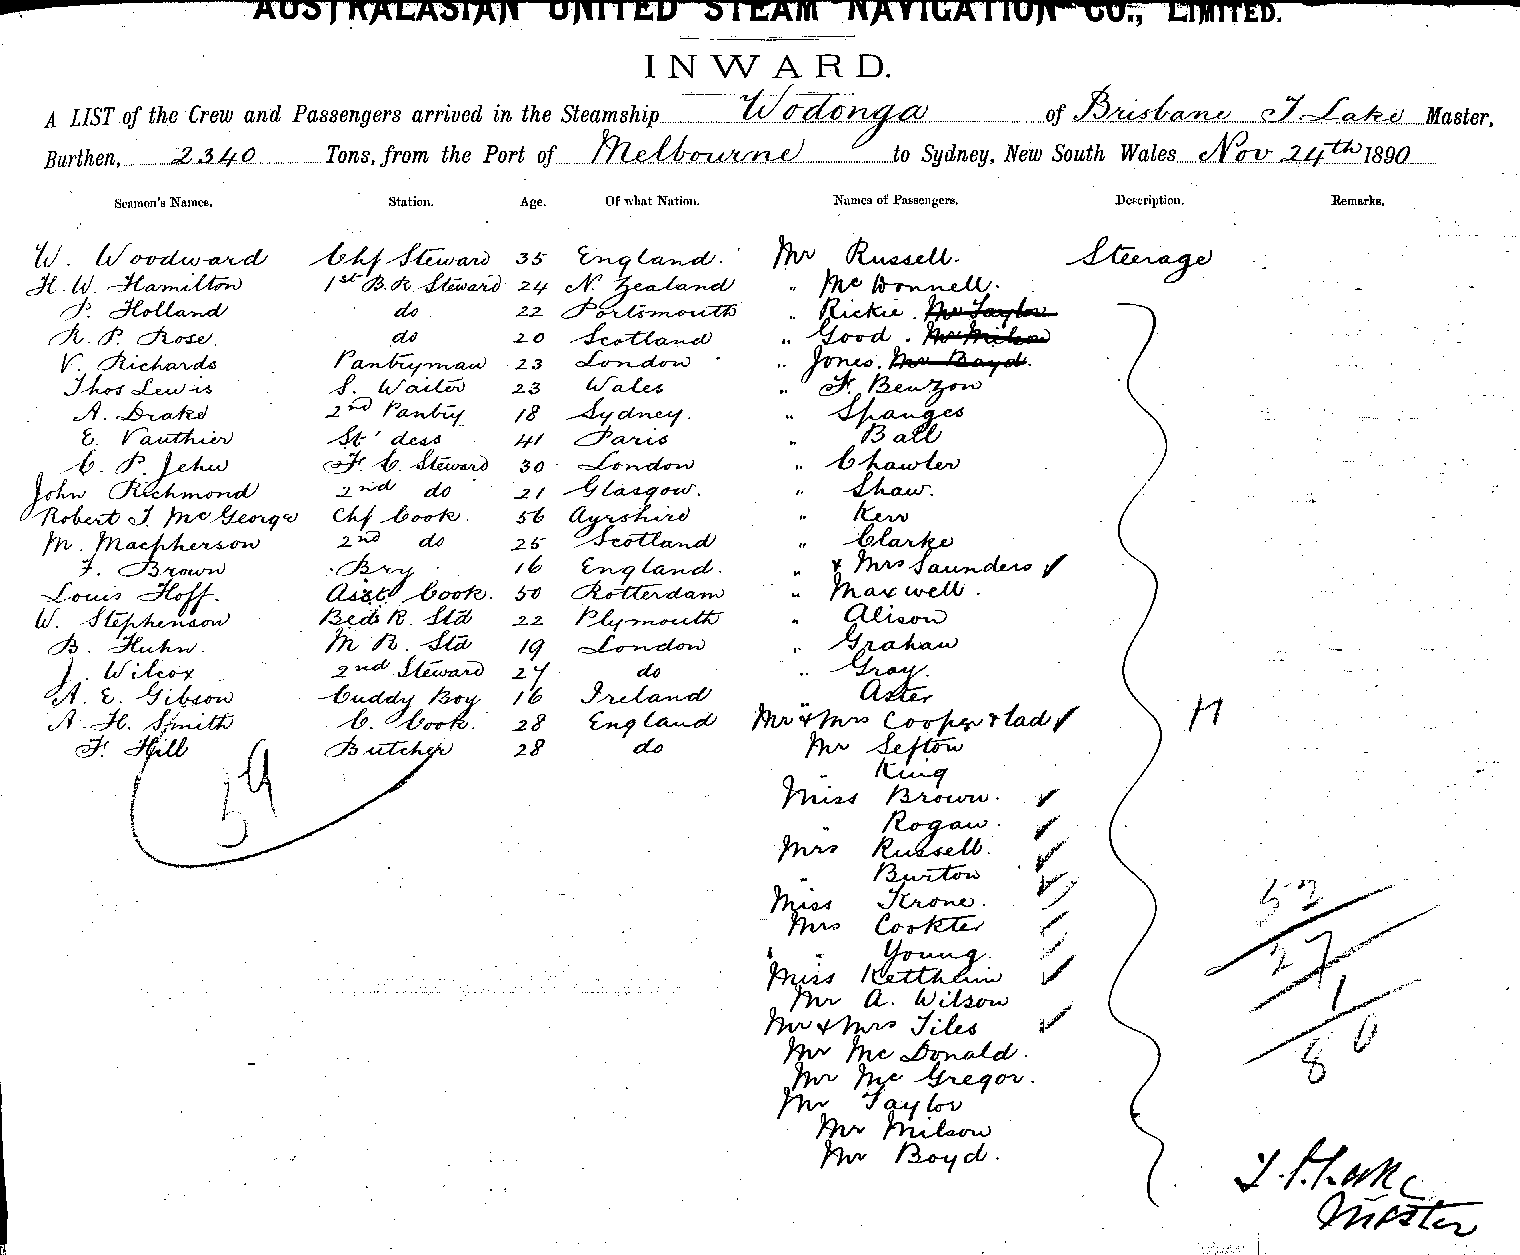 AUSTRALASIAN UNITED STEAM NAVIGATION CO., LIMITED.
INWARD.
A LIST of the Crew and Passengers arrived in the Steamship Wodonga of Brisbane T. Lake Master,
Burthen, 2340 Tons, from the Port of Melbourne to Sydney, New South Wales Nov 24th 1890
Seamen's Names. Station. Age. Of what Nation. Names of Passengers. Description. Remarks.
W. Woodward Chf Steward 35 England. Mr Russell. Steerage
H. W. Hamilton 1st B.R. Steward 24 N. Zealand " McDonnell.
P. Holland do 22 Portsmouth " Rickie. Mr Taylor
R. P. Rose. do 20 Scotland " Good. Mr Milson
V. Richards Pantryman 23 London " Jones. Mr Boyd.
Thos Lewis S. Waiter 23 Wales " F. Benzon
A. Drake 2nd Pantry 18 Sydney. " Spanges
E. Vauthier St'dess 41 Paris " Ball
C. P. Jehu F. C. Steward 30 London " Chawler
John Richmond 2nd do 21 Glasgow. " Shaw.
Robert T. McGeorge Chf Cook. 56 Ayrshire " Kerr
M. Macpherson 2nd do 25 Scotland " Clarke
F. Brown Bry 16 England. " & Mrs Saunders ✓
Louis Hoff. Asst Cook. 50 Rotterdam " Maxwell.
W. Stephenson Bed R. Std 22 Plymouth " Alison
B. Huhn. M R. Std 19 London " Graham
J. Wilcox 2nd Steward 27 do " Gray.
A. E. Gibson Cuddy Boy 16 Ireland " Aster
A. H. Smith C. Cook. 28 England Mr & Mrs Cooper & lad ✓
F. Hill Butcher 28 do Mr Sefton
59 " King
Miss Brown. ✓
" Rogan. ✓
Mrs Russell. ✓
" Burton ✓
Miss Krone.
Mrs Cookter
" Young.
Miss Kettheim ✓
Mr A. Wilson
Mr & Mrs Tiles ✓
Mr McDonald.
Mr McGregor.
Mr Taylor
Mr Milson
Mr Boyd.
52
27
1
80
T. Lake
Master